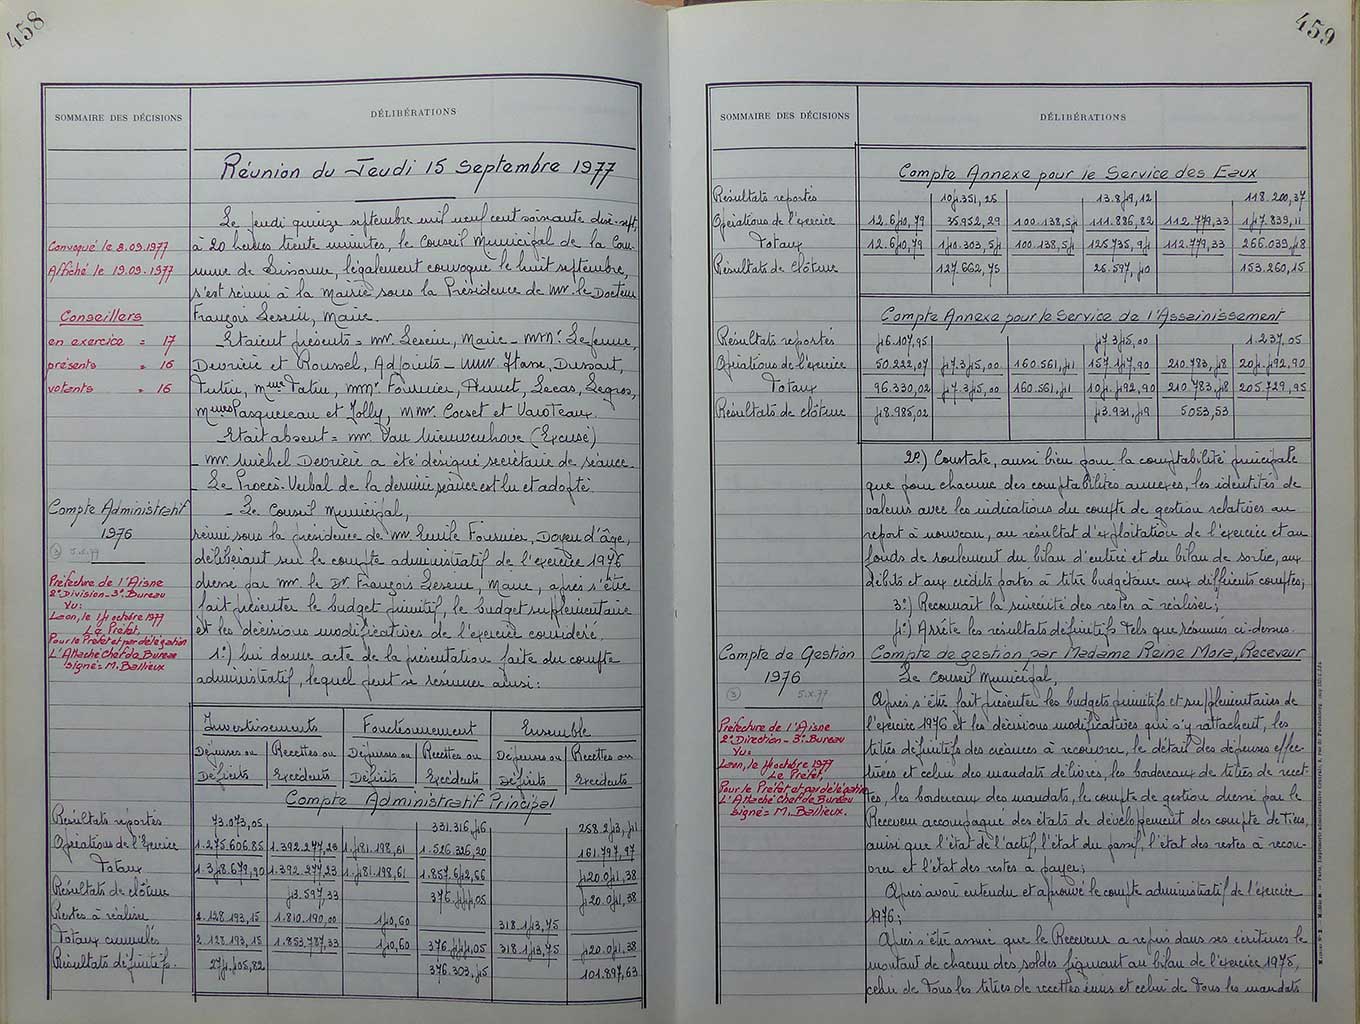 458
SOMMAIRE DES DÉCISIONS
DÉLIBÉRATIONS
Réunion du Jeudi 15 Septembre 1977
Le jeudi quinze septembre mil neuf cent soixante dix-sept,
Convoqué le 8.09.1977
à 20 heures trente minutes, le Conseil Municipal de la Com-
Affiché le 19.09.1977
mune de Sissonne, légalement convoqué le huit septembre,
s'est réuni à la Mairie sous la Présidence de Mr. le Docteur
Conseillers
François Leseur, Maire.
en exercice = 17
Etaient présents = Mr. Leseur, Maire - MMr. Lefevre,
présents = 16
Devrière et Roussel, Adjoints - MMr Hasse, Dussart,
votants = 16
Tutin, Mme Tatin, MMr. Fournier, Lecas, Legros,
Mmes Pasquereau et Jolly, MMr. Cocset et Varoteaux.
Etait absent = Mr. Van Nieuwenhove (Excusé)
- Mr. Michel Devrière a été désigné secrétaire de séance.
- Le Procès-Verbal de la dernière séance est lu et adopté.
Compte Administratif
1976
- Le Conseil Municipal,
réuni sous la présidence de Mr. Emile Fournier, Doyen d'âge,
délibérant sur le compte administratif de l'exercice 1976
Préfecture de l'Aisne
2e Division - 3e Bureau
Vu:
Laon, le 14 octobre 1977
Le Préfet,
Pour le Préfet et par délégation
L'Attaché Chef de Bureau
signé = M. Bailleux
dressé par Mr. le Dr François Leseur, Maire, après s'être
fait présenter le budget primitif, le budget supplémentaire
et les décisions modificatives de l'exercice considéré.
1°) lui donne acte de la présentation faite du compte
administratif, lequel peut se résumer ainsi:
Investissements Fonctionnement Ensemble
Dépenses ou Recettes ou Dépenses ou Recettes ou Dépenses ou Recettes ou
Déficits Excédents Déficits Excédents Déficits Excédents
Compte Administratif Principal
Résultats reportés 73.073,05 331.316,46 258.243,41
Opérations de l'Exercice 1.275.606,85 1.392.277,23 1.481.198,61 1.526.326,20 161.797,97
Totaux 1.348.679,90 1.392.277,23 1.481.198,61 1.857.642,66 420.041,38
Résultats de clôture 43.597,33 376.444,05 420.041,38
Restes à réaliser 2.128.193,15 1.810.190,00 140,60 318.143,75
Totaux cumulés 2.128.193,15 1.853.787,33 140,60 376.444,05 318.143,75 420.041,38
Résultats définitifs 274.405,82 376.303,45 101.897,63
459
SOMMAIRE DES DÉCISIONS
DÉLIBÉRATIONS
Compte Annexe pour le Service des Eaux
Résultats reportés 104.351,25 13.849,12 118.200,37
Opérations de l'exercice 12.640,79 35.952,29 100.138,54 111.886,82 112.779,33 147.839,11
Totaux 12.640,79 140.303,54 100.138,54 125.735,94 112.779,33 266.039,48
Résultats de clôture 127.662,75 25.597,40 153.260,15
Compte Annexe pour le Service de l'Assainissement
Résultats reportés 46.107,95 47.345,00 1.237,05
Opérations de l'exercice 50.222,07 47.345,00 160.561,41 157.147,90 210.783,48 204.492,90
Totaux 96.330,02 47.345,00 160.561,41 104.492,90 210.783,48 205.729,95
Résultats de clôture 48.985,02 43.931,49 5053,53
2°) Constate, aussi bien pour la comptabilité principale
que pour chacune des comptabilités annexes, les identités de
valeurs avec les indications du compte de gestion relatives au
report à nouveau, au résultat d'exploitation de l'exercice et au
fonds de roulement du bilan d'entrée et du bilan de sortie, aux
débits et aux crédits portés à titre budgétaire aux différents comptes;
3°) Reconnaît la sincérité des restes à réaliser;
4°) Arrête les résultats définitifs tels que résumés ci-dessus.
Compte de Gestion
1976
Compte de gestion par Madame Reine Mora, Receveur
Le Conseil Municipal,
5.X.77
Après s'être fait présenter les budgets primitifs et supplémentaires de
Préfecture de l'Aisne
2e Direction - 3e Bureau
Vu:
Laon, le 14 octobre 1977
Le Préfet,
Pour le Préfet et par délégation
L'Attaché Chef de Bureau
signé = M. Bailleux.
l'exercice 1976 et les décisions modificatives qui s'y rattachent, les
titres définitifs des créances à recouvrer, le détail des dépenses effec-
tuées et celui des mandats délivrés, les bordereaux de titres de recet-
tes, les bordereaux des mandats, le compte de gestion dressé par le
Receveur accompagné des états de développement des compte de Tiers,
ainsi que l'état de l'actif, l'état du passif, l'état des restes à recou-
vrer et l'état des restes à payer;
Après avoir entendu et approuvé le compte administratif de l'exercice
1976;
Après s'être assuré que le Receveur a repris dans ses écritures le
montant de chacun des soldes figurant au bilan de l'exercice 1975,
celui de Tous les titres de recettes émis et celui de Tous les mandats